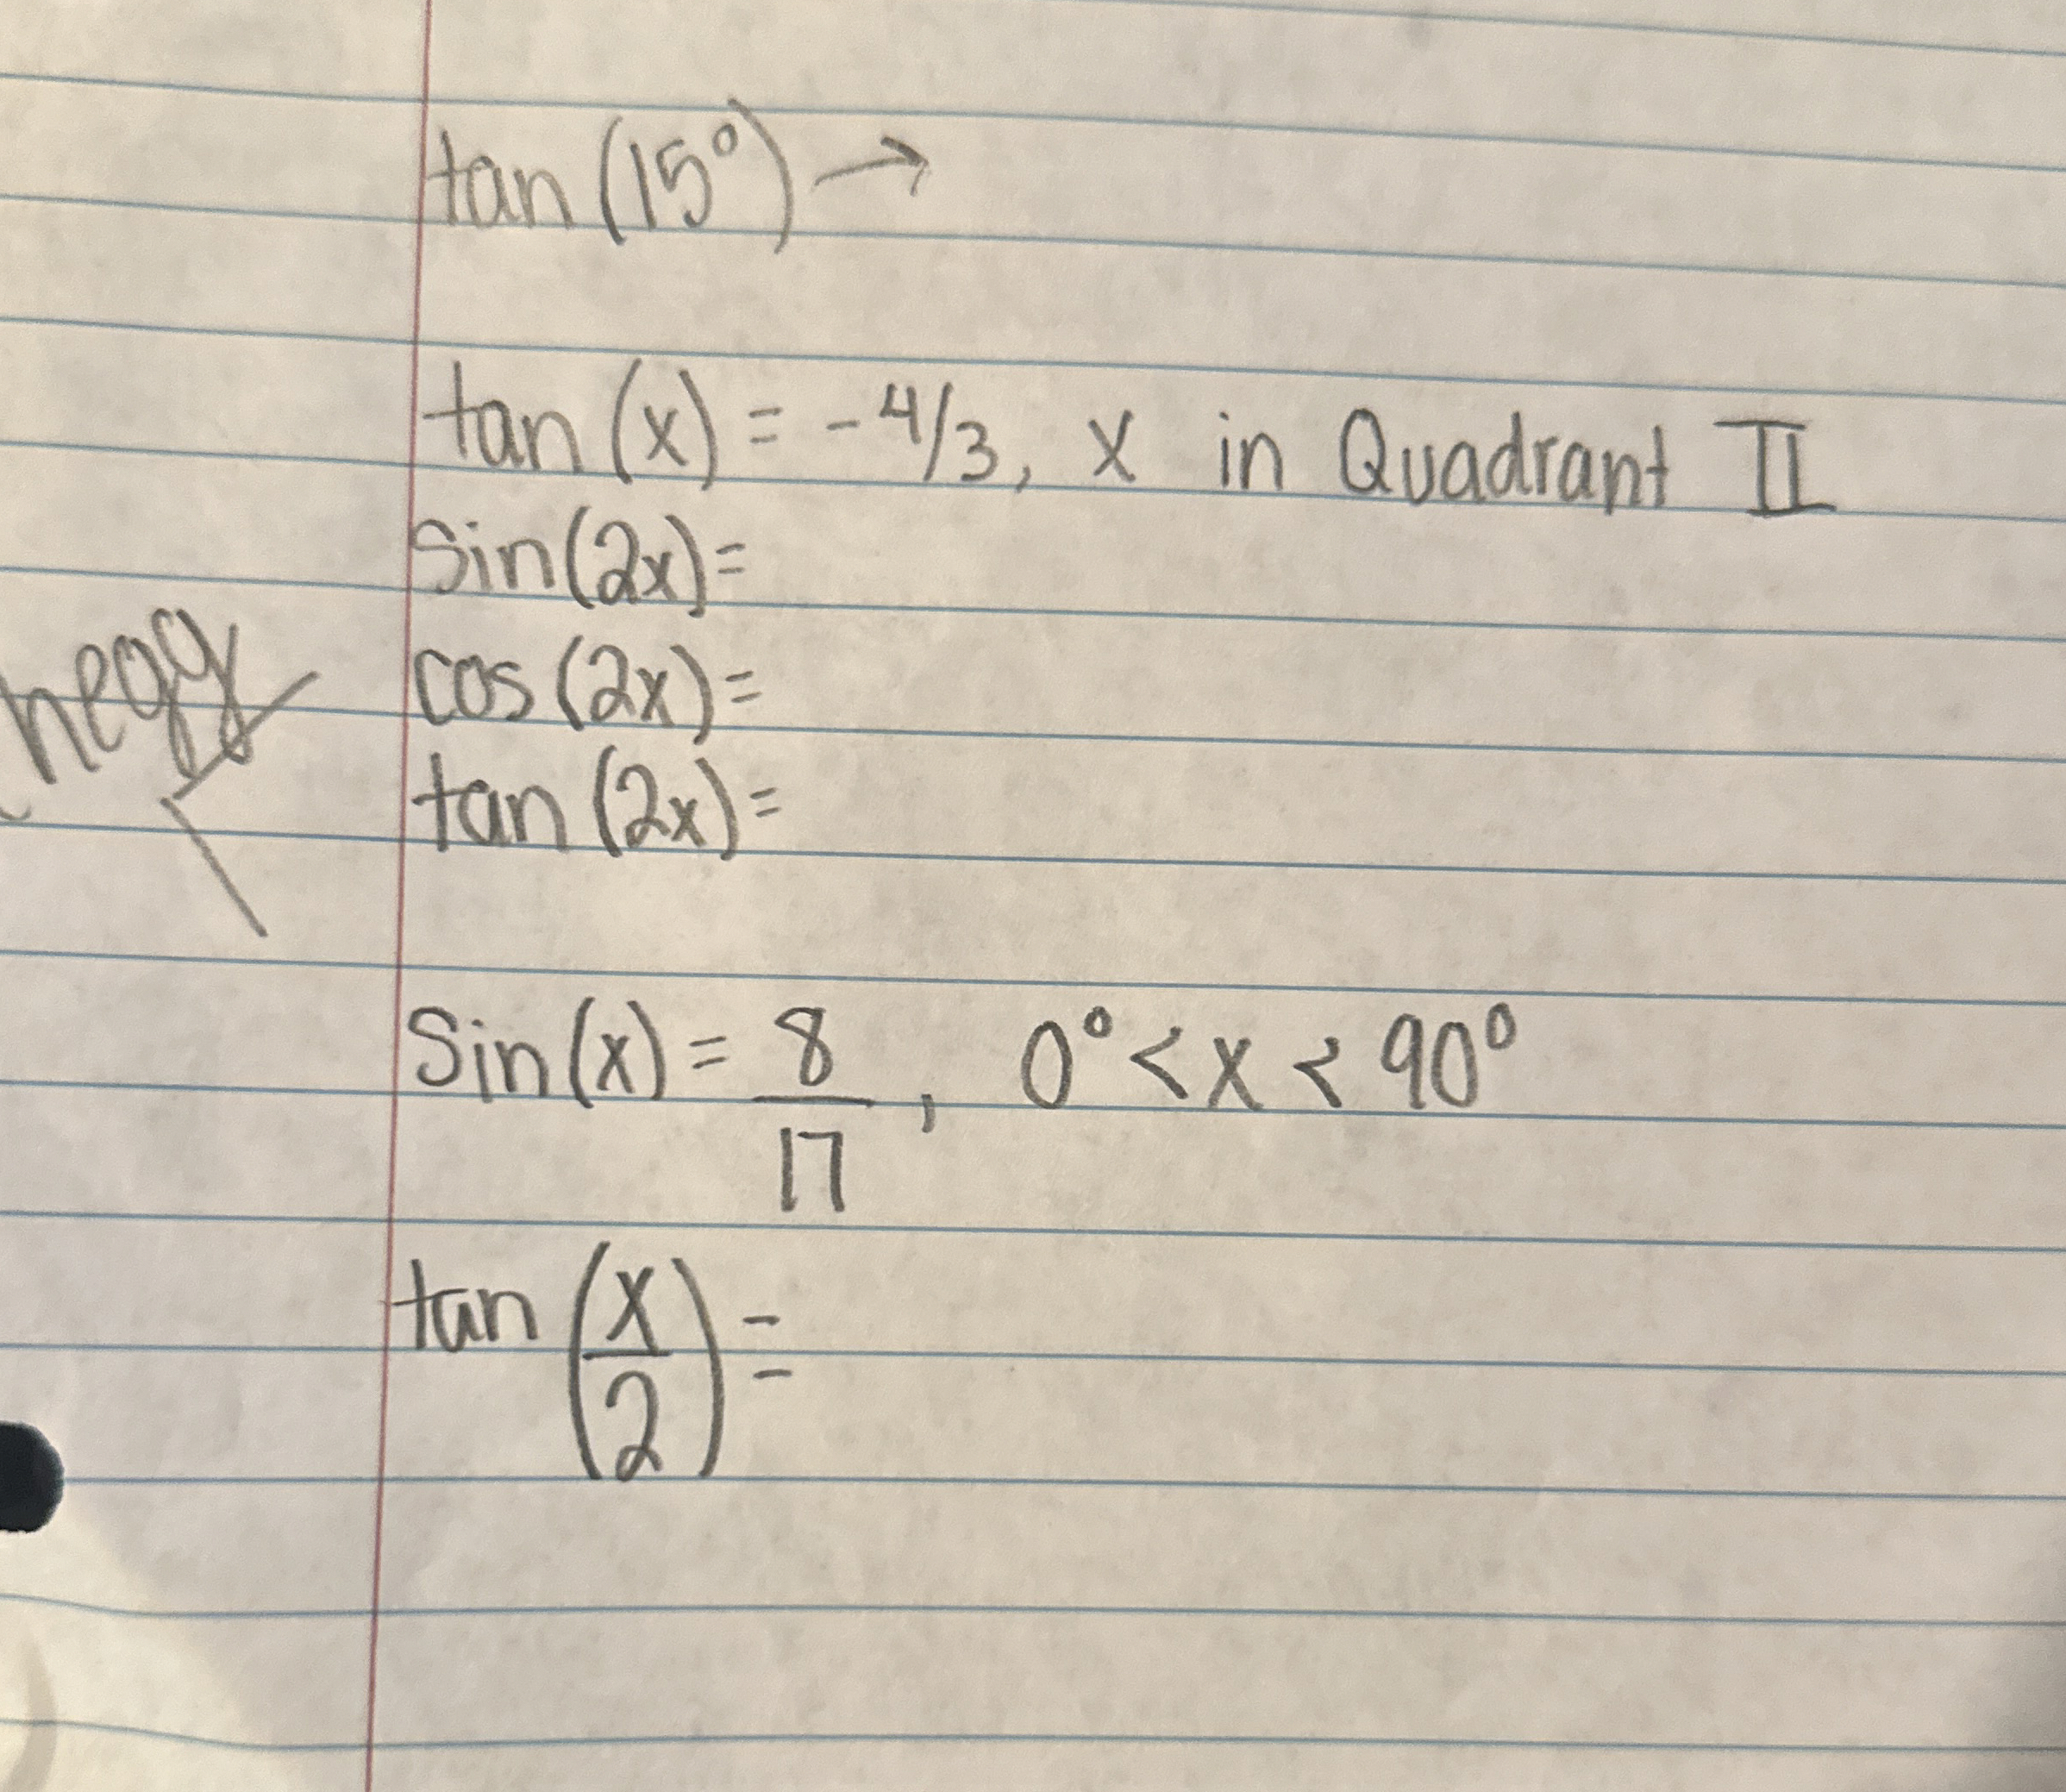 tan(15°) →
tan(x) = -4/3, x in Quadrant II
sin(2x)=
cos(2x)=
tan(2x)=
Sin(x) = 8/17, 0° < x < 90°
tan(x/2) =